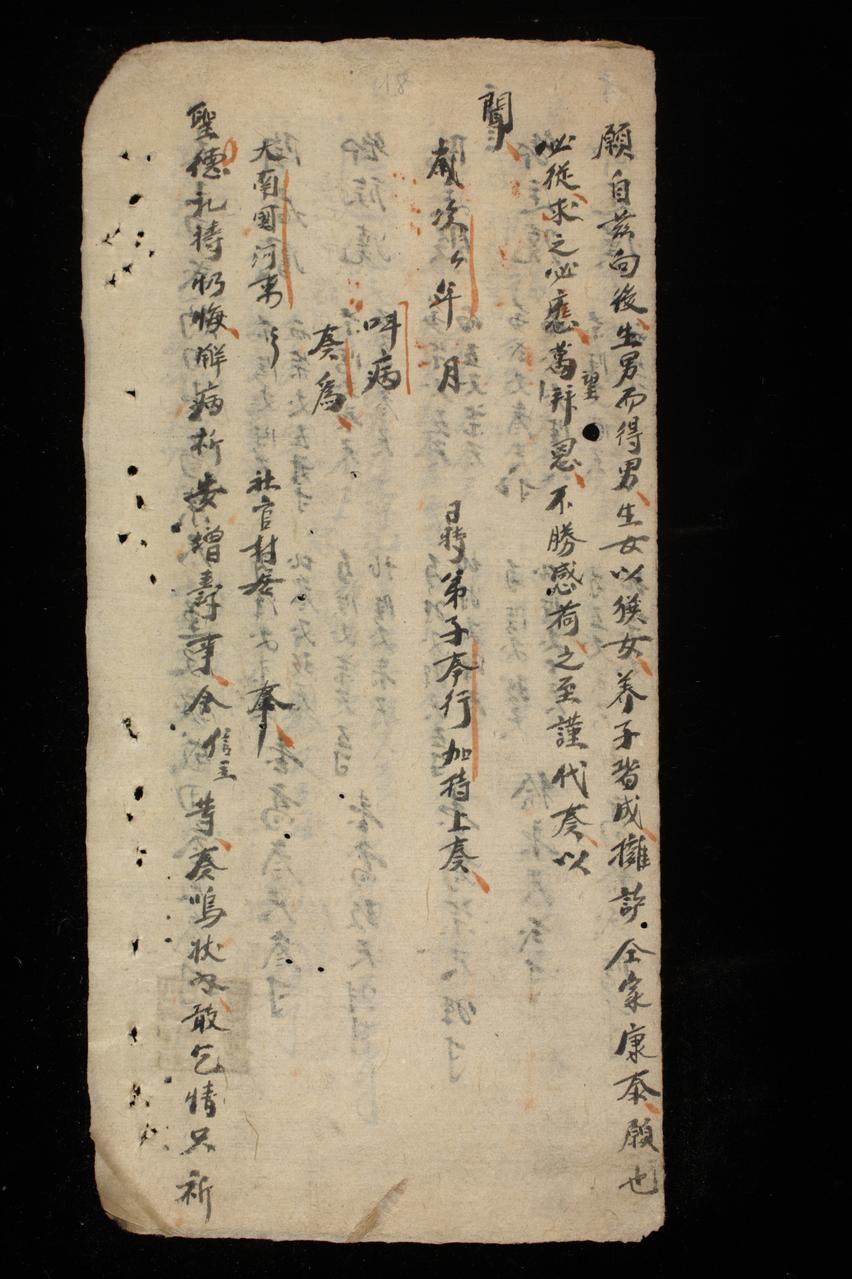 願自兹向後生男而得男生女以獲女養子皆成擁護仝家康泰願也
必從求之必應萬望拜恩不勝感荷之至謹代奏以
聞
歲次 年 月 日時弟子奉行加持上奏
呌病
奏爲
大南國河東 社官封 奉
聖德礼持 悔解病祈安增壽事今信主 等奏 状 敢乞情只祈